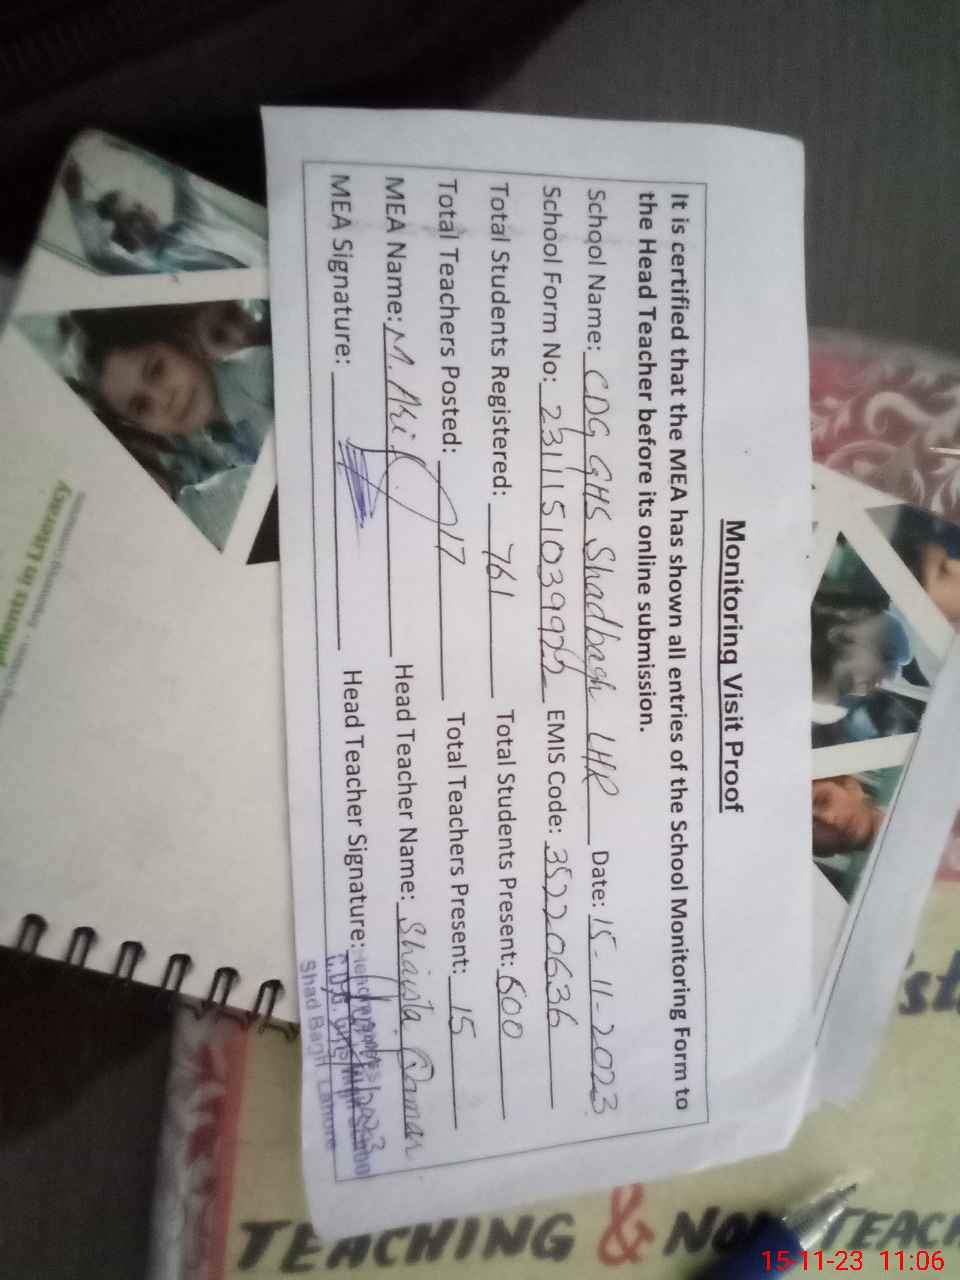 Monitoring Visit Proof
It is certified that the MEA has shown all entries of the School Monitoring Form to
the Head Teacher before its online submission.
School Name: CDG GHS Shadbagh LHR Date: 15-11-2023
School Form No: EMIS Code: 35220636
Total Students Registered: 761 Total Students Present: 600
Total Teachers Posted: 17 Total Teachers Present: 15
MEA Name: M. Head Teacher Name: Shaista Qamar
MEA Signature: Head Teacher Signature:
Shad Bagh Lahore
TEACHING & NON TEACH
15-11-23 11:06